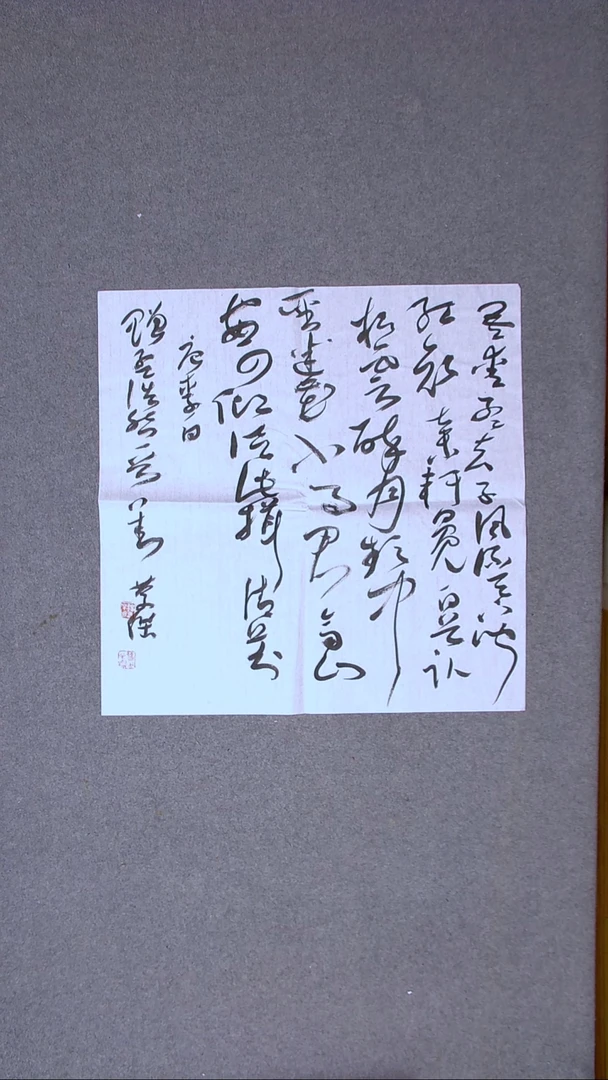 吾爱孟夫子风流天下闻
红颜弃轩冕白首卧
松云醉月频中
圣迷花不事君高山
安可仰徒此揖清芬
唐李白
赠孟浩然